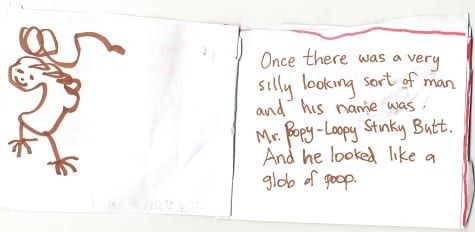 Once there was a very
silly looking sort of man
and his name was.
Mr. Poopy-Loopy Stinky Butt.
And he looked like a
glob of poop.